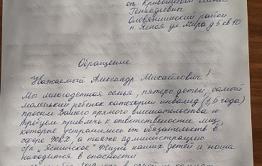 от Кривош
Геннадьевич
Оловяннинский район
п. Ясная ул Мира д 5 кв 10
Обращение
Уважаемый Александр Михайлович!
Мы многодетная семья, пятеро детей, самой
маленькой ребенок категории инвалид (1,6 года)
просим Вашего прямого вмешательства и
привлечь к ответственности лиц,
которые устранились от обязательств в
сфере ЖКХ, а также администрацию
"Яснинское" Жизнь наших детей и наша
находится в опасности